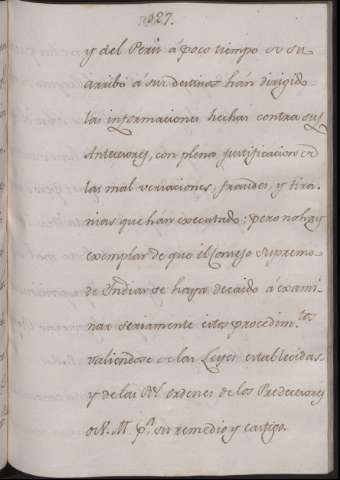 327.
y del Perù á poco tiempo de su
arribo á sus destinos hán dirigido
las informaciones hechas contra sus
Antecesores, con plena justificacion de
las mal versaciones, fraudes, y tira-
nias que hán executado; pero no hay
exemplar de que el Consejo Supremo
de Indias se haya decidido á exami-
nar seriamente estos procedim.tos
valiendose de las Leyes establecidas
y de las R.s ordenes de los Predecesores
de V. M. p.a su remedio y castigo.